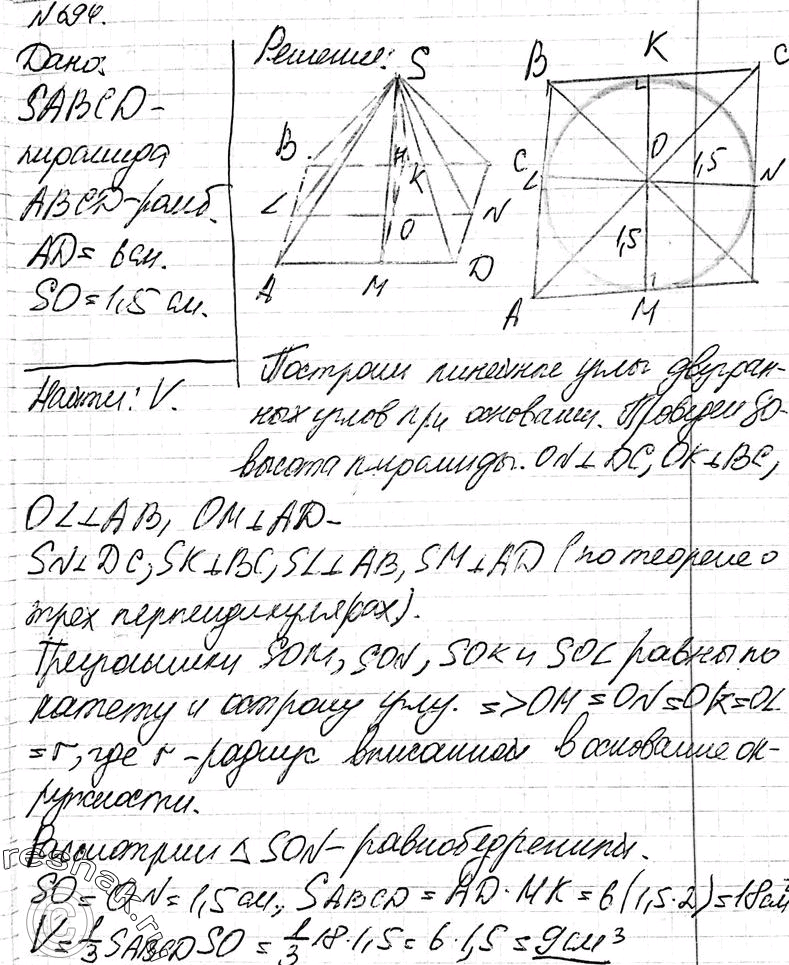 N 694.
Дано:
SABCD-
пирамида
ABCD-ромб.
AD = 6см.
SO = 1,5 см.
Найти: V.
Решение:
S
B
H
K
C
L
N
O
A
M
D
K
B
C
O
1,5
L
N
1,5
A
M
Построим линейные углы двугран-
ных углов при основании. Проведем SO-
высота пирамиды. ON⊥DC, OK⊥BC,
OL⊥AB, OM⊥AD-
SN⊥DC, SK⊥BC, SL⊥AB, SM⊥AD (по теореме о
трех перпендикулярах).
Треугольники SOM, SON, SOK и SOL равны по
катету и острому углу. => OM = ON = OK = OL
= r, где r - радиус вписанной в основание ок-
ружности.
Рассмотрим △ SON - равнобедренный.
SO = ON = 1,5 см, SABCD = AD · MK = 6(1,5·2)=18см²
V = 1/3 SABCD SO = 1/3 18·1,5 = 6·1,5 = 9см³
reshak.ru